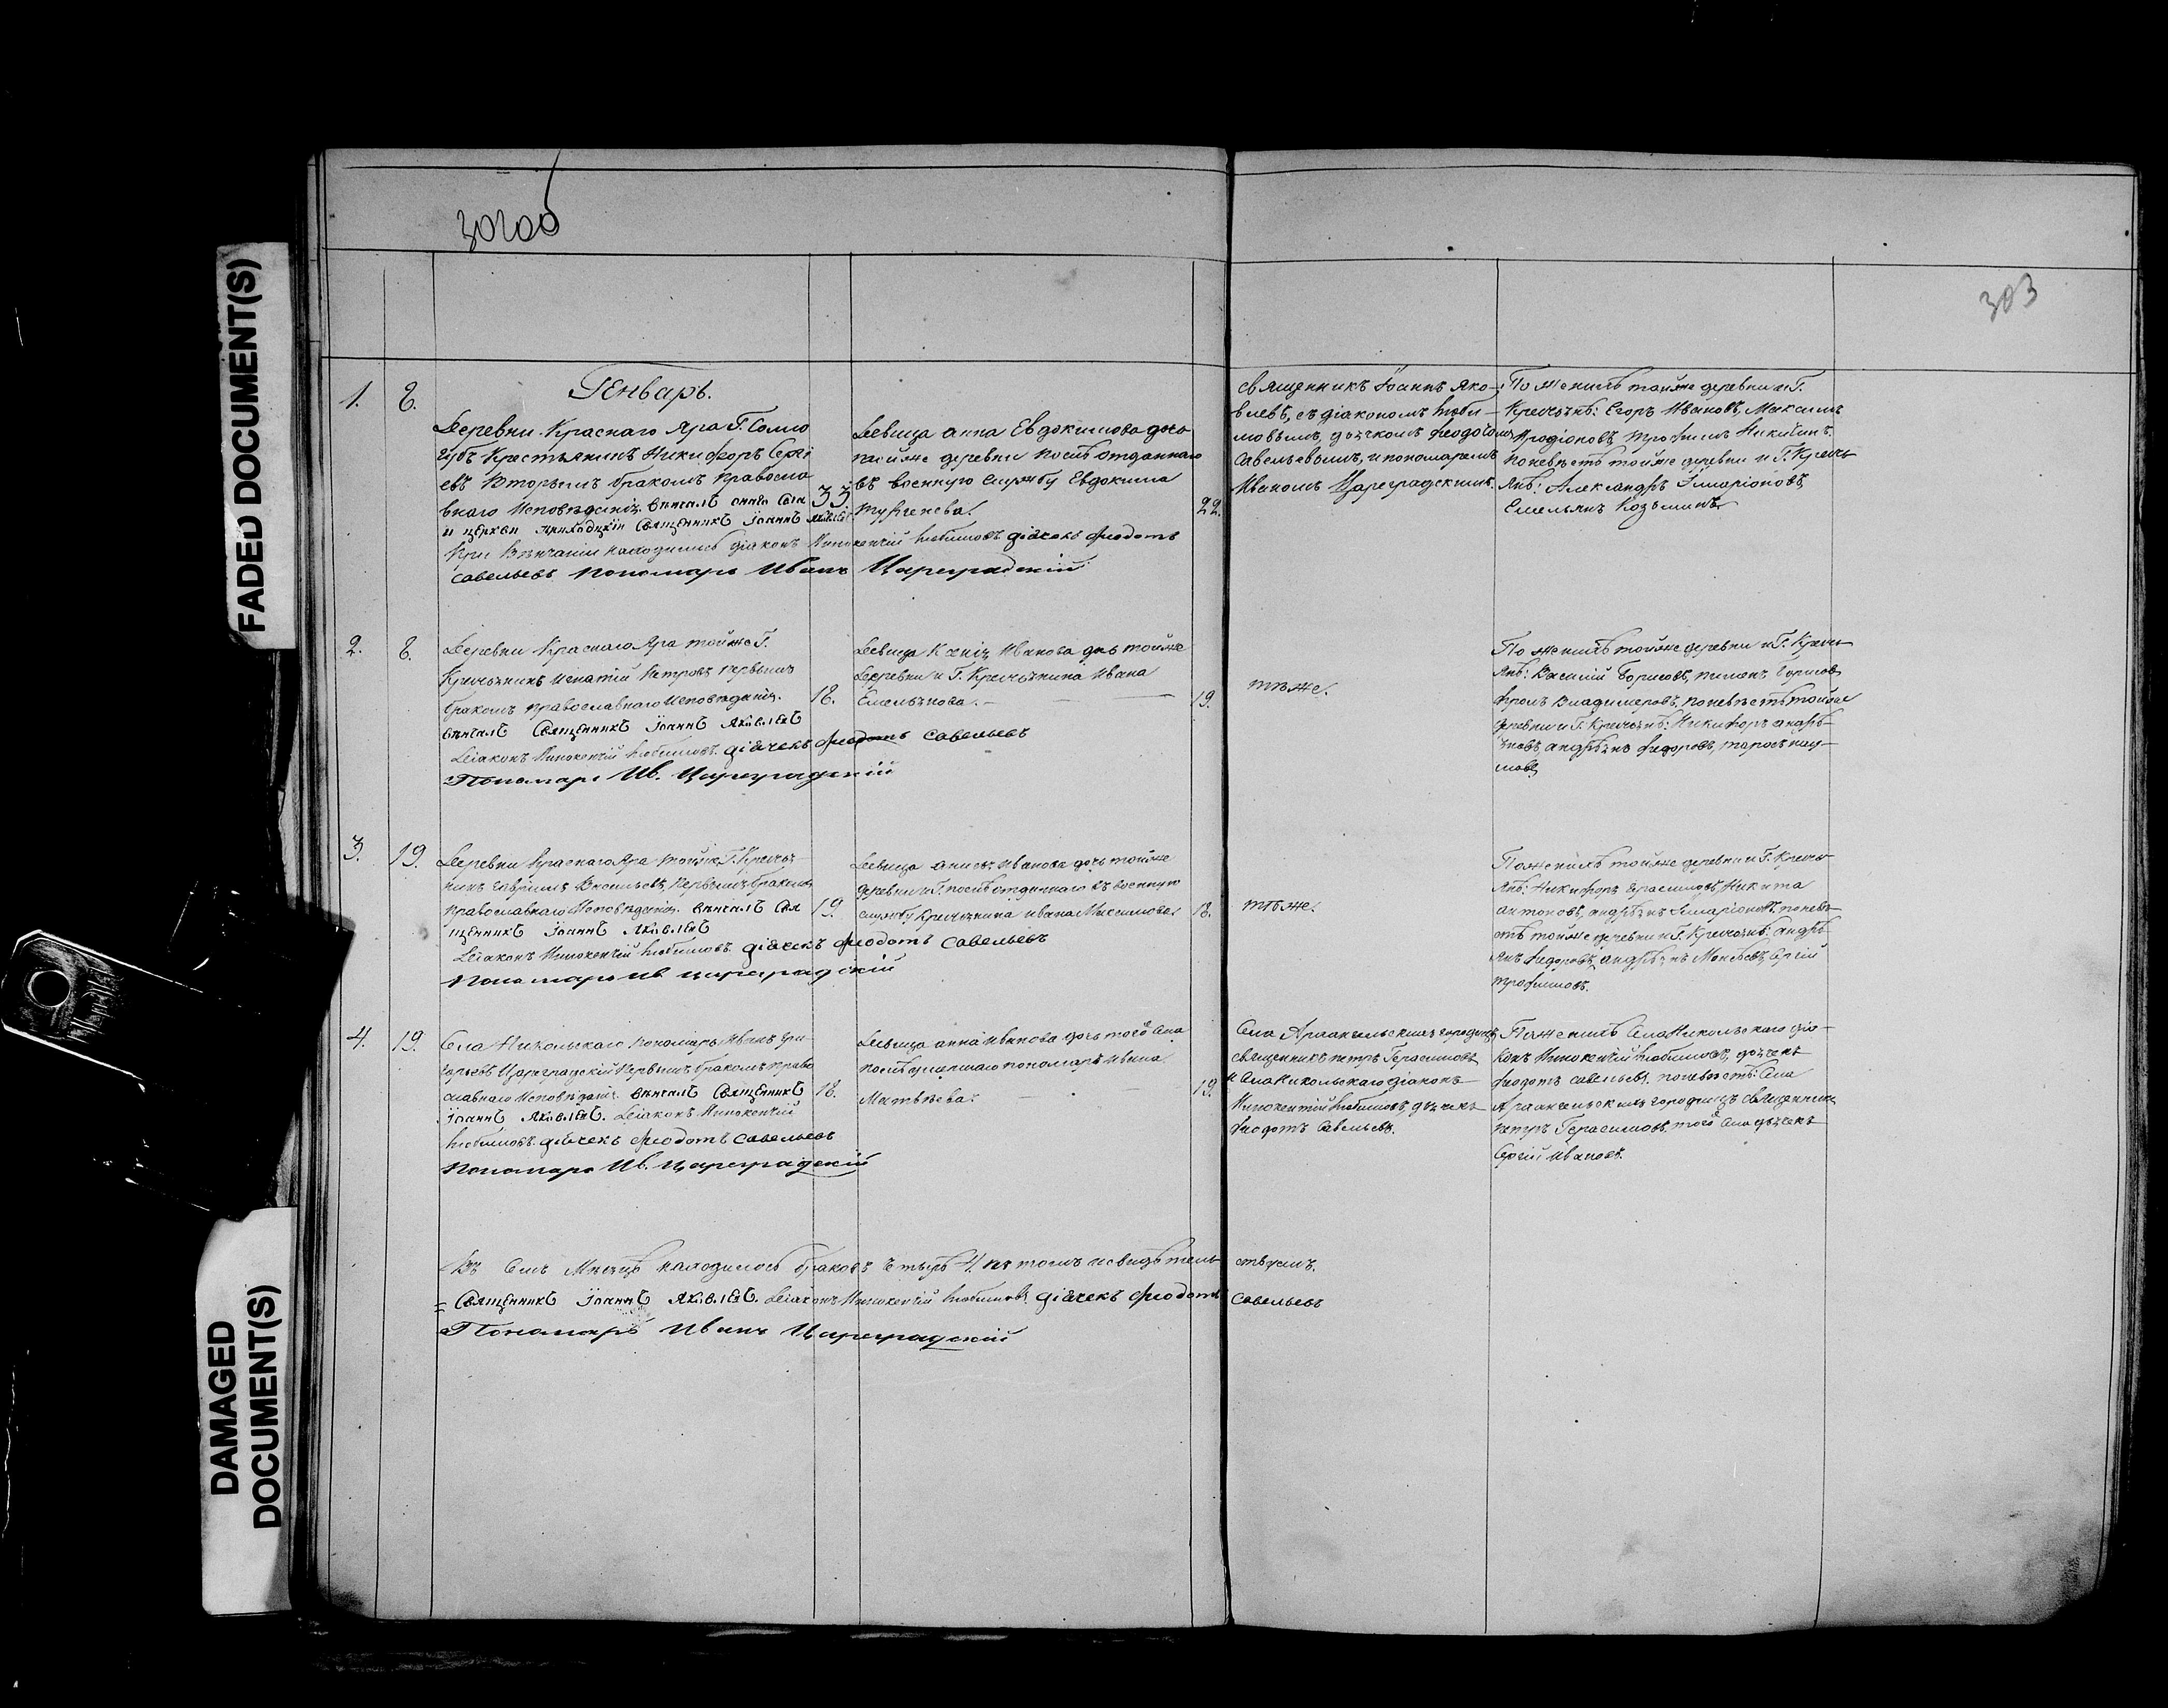 FADED DOCUMENT(S)
DAMAGED
DOCUMENT(S)
302об
303
Генварь.
1.
8.
Деревни Краснаго Яра Г. Солло
губъ Крестьянинъ Никифоръ Серге
евъ Вторымъ бракомъ Правосла
внаго Исповѣданія. Вѣнчалъ онаго Села
и церкви приходскій Священникъ Іоаннъ Яковлевъ
При Вѣнчаніи находились діаконъ Инокентій Любимовъ діачекъ Феодотъ
Савельевъ Пономарь Иванъ Цареградскій
33
Девица Анна Евдокимова дочь
тойже деревни послѣ отданнаго
въ военную Службу Евдокима
22.
Священникъ Іоаннъ Яко-
влевъ, съ діакономъ Люби-
мовымъ, дьячкомъ Феодотомъ
Савельевымъ, и пономаремъ
Иваномъ Цареградскимъ.
По женихѣ тойже деревни и Г.
Крестьянѣ: Егоръ Ивановъ, Максимъ
Иродіоновъ Трофимъ Никитинъ.
По невѣстѣ тойже деревни и Г. Кресть
янѣ: Александръ Иларіоновъ,
Емельянъ Козьминъ.
2.
8.
Деревни Краснаго Яра тойже Г.
Крестьянинъ Игнатій Петровъ первымъ
бракомъ Православнаго Исповѣданія.
Вѣнчалъ Священникъ Іоаннъ Яковлевъ
Діаконъ Инокентій Любимовъ. діачекъ Феодотъ Савельевъ
Пономарь Ив. Цареградскій
18.
Девица Ксенія Иванова дочь тойже
Деревни и Г. Крестьянина Ивана
Емельянова.
19.
тѣже.
По женихѣ тойже деревни и Г. Кресть
янѣ: Василій Борисовъ, Пименъ Борисовъ
Фролъ Владимеровъ, по невѣстѣ тойже
деревни и Г. Крестьянѣ: Никифоръ Андрѣ-
яновъ Андрѣянъ Федоровъ, Тарасъ Нау-
мовъ
3.
19.
Деревни Краснаго Яра тойже Г. Крестья
нинъ Гаврилъ Васильевъ, Первымъ бракомъ
Православнаго Исповѣданія. Вѣнчалъ Свя
щенникъ Іоаннъ Яковлевъ
Діаконъ Инокентій Любимовъ. діачекъ Феодотъ Савельевъ
Пономарь Ив Цареградскій
19.
Девица Анисья Иванова дочь тойже
деревни и Г. послѣ отданнаго въ военную
службу Крестьянина Ивана
18.
тѣже.
По женихѣ тойже деревни и Г. Кресть
янѣ: Никифоръ Герасимовъ, Никита
Антоновъ, Андрѣянъ Иларіоновъ. по невѣ
стѣ тойже деревни и Г. Крестьянѣ: Андрѣ
янъ Федоровъ, Андрѣянъ Сергій
Трофимовъ.
4.
19.
Села Никольскаго Пономарь Иванъ Гри
горьевъ Цареградскій Первымъ бракомъ Право
славнаго Исповѣданія. Вѣнчалъ Священникъ
Іоаннъ Яковлевъ. Діаконъ Инокентій
Любимовъ. діачекъ Феодотъ Савельевъ
Пономарь Ив. Цареградскій
18.
Девица Анна Иванова дочь того Села
послѣ умершаго пономаря Ивана
Матвѣева.
19.
Села Архангельскихъ городищъ
священникъ Петръ Герасимовъ
и Села Никольскаго діаконъ
Инокентій Любимовъ, дьячекъ
Феодотъ Савельевъ.
По женихѣ Села Никольскаго діа-
конъ Инокентій Любимовъ, дьячекъ
Феодотъ Савельевъ. по невѣстѣ: Села
Архангельскихъ городищъ священникъ
Петръ Герасимовъ. того Села дьячекъ
Сергій Ивановъ.
Въ Семъ Мѣсяцѣ находилось браковъ Четыре 4. въ томъ и свидѣтель ствуемъ.
Священникъ Іоаннъ Яковлевъ. Діаконъ Инокентій Любимовъ. діачекъ Феодотъ Савельевъ
Пономарь Иванъ Цареградскій